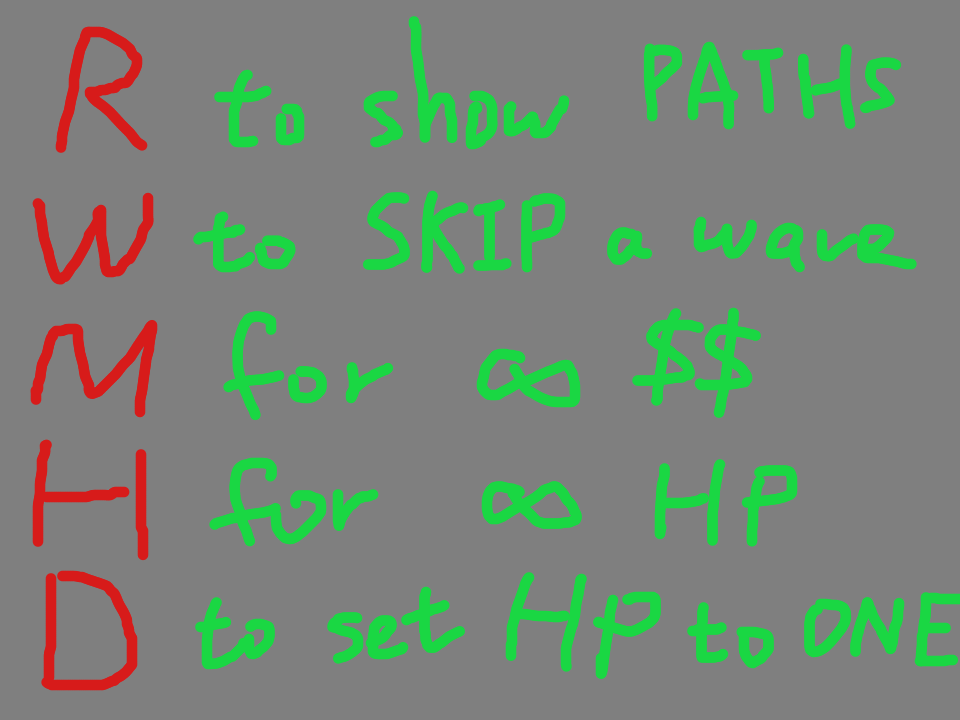 R to show PATHs
W to SKIP a wave
M for ∞ $$
H for ∞ HP
D to set HP to ONE